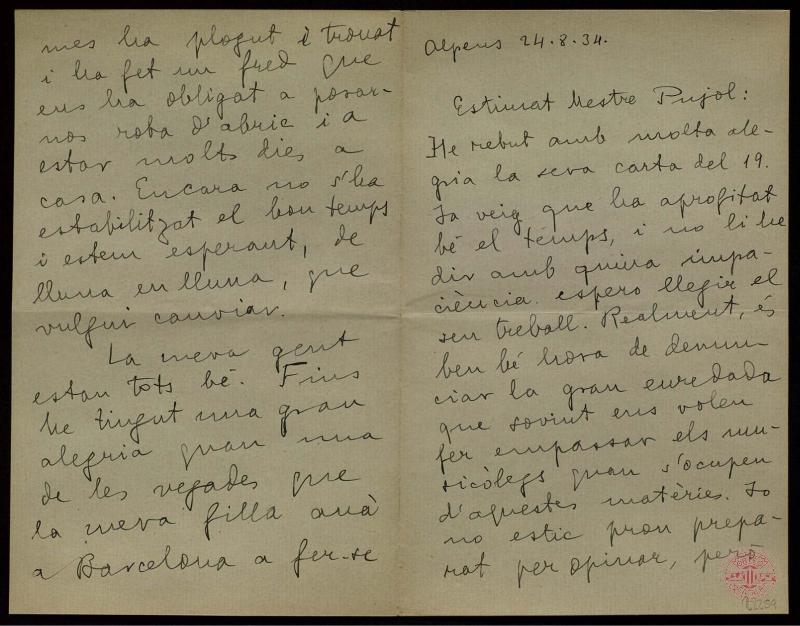 Alpens 24.8.34.
Estimat Mestre Pujol:
He rebut amb molta ale-
gria la seva carta del 19.
Ja veig que ha aprofitat
bé el temps, i no li he
dir amb quina impa-
ciència espero llegir el
seu treball. Realment, és
ben bé hora de denun-
ciar la gran enredada
que sovint ens volen
fer empassar els mu-
sicòlegs quan s'ocupen
d'aquestes matèries. Jo
no estic prou prepa-
rat per opinar, però
mes ha plogut i tronat
i ha fet un fred que
ens ha obligat a posar-
nos roba d'abric i a
estar molts dies a
casa. Encara no s'ha
estabilitzat el bon temps
i estem esperant, de
lluna en lluna, que
vulgui canviar.
La meva gent
estan tots bé. Fins
he tingut una gran
alegria quan una
de les vegades que
la meva filla anà
a Barcelona a fer-se
22259